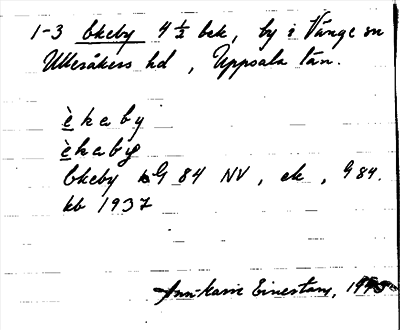 1-3 Ekeby 4 ½ bek, by i Vänge sn
Ulleråkers hd, Uppsala län.
è k a b y
è k a b y
Ekeby G 84 NV, ek, G 84.
kb 1937
Ann-Karin Einestam,